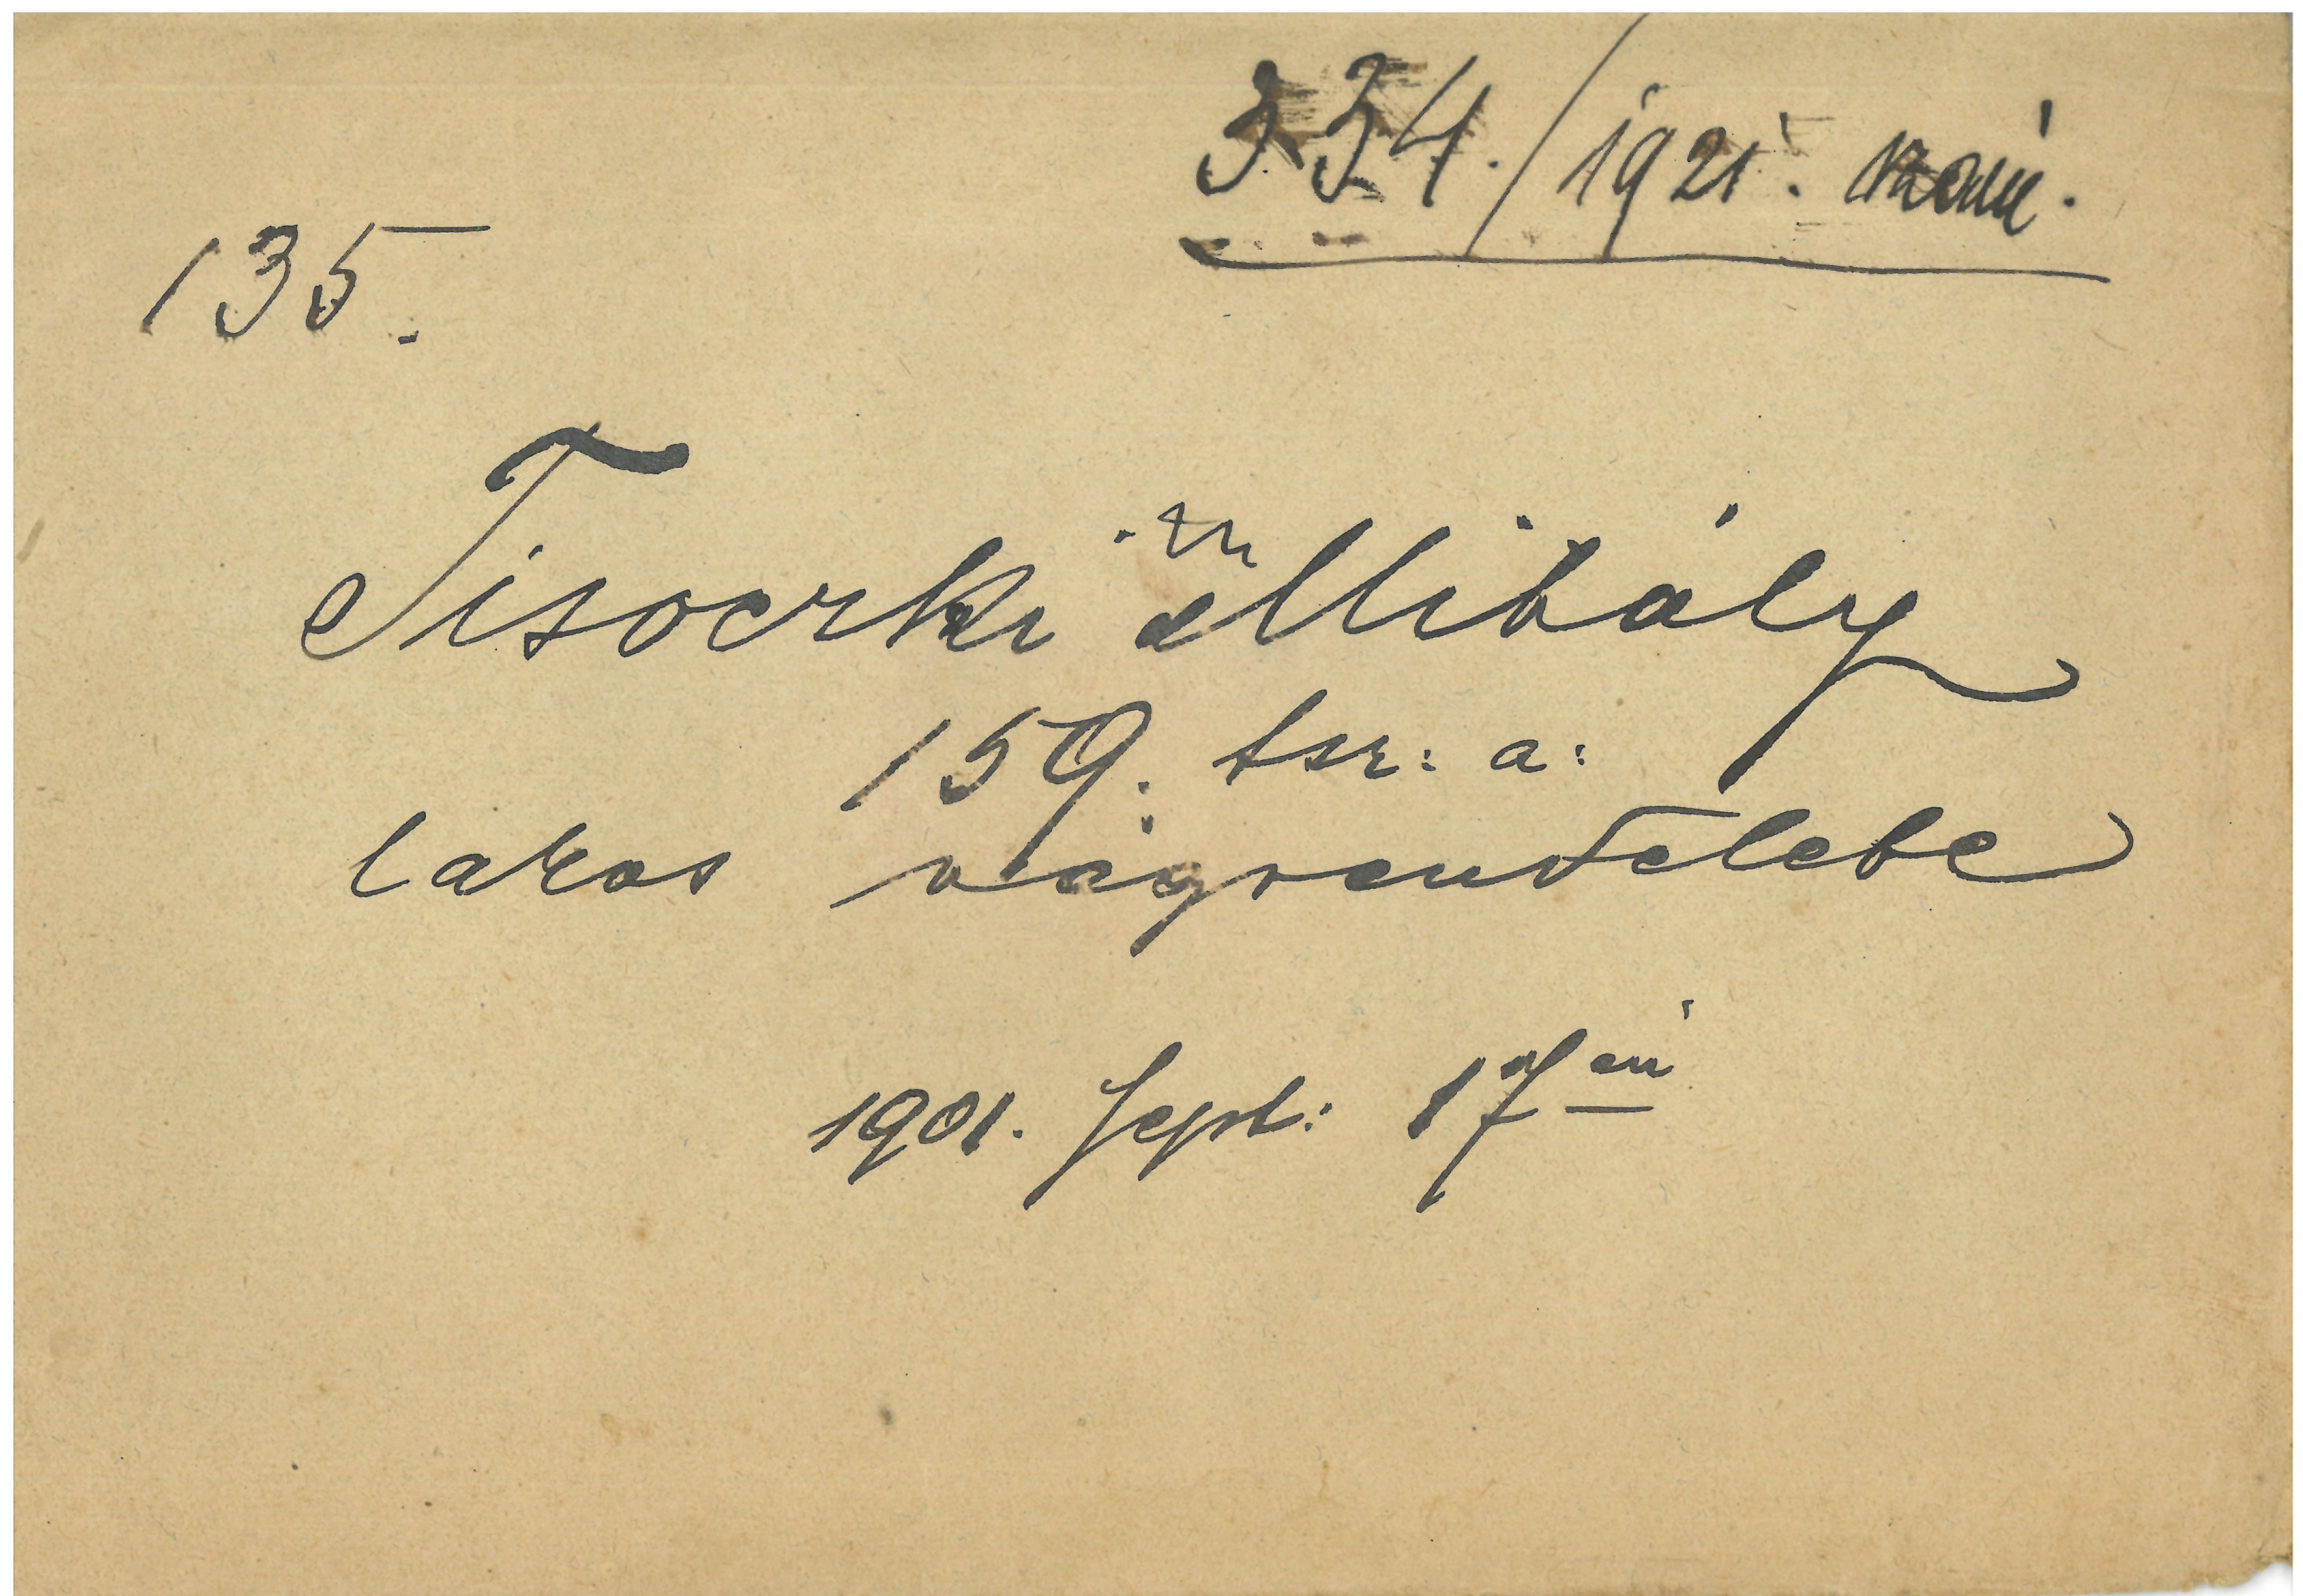 334./1921. szám.
135.
Tisoczki Mihály
159. hsz: a:
lakos végrendelete
1901. Sept: 17én